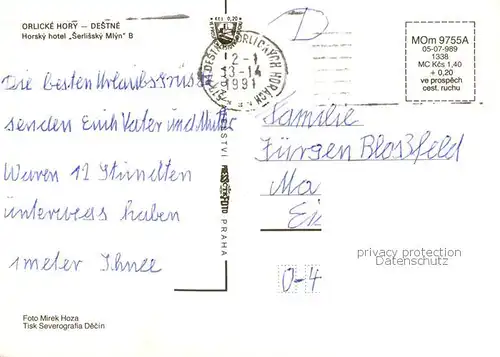 ORLICKÉ HORY — DEŠTNÉ
Horský hotel „Šerlišský Mlýn" B
Kčs 0,20
D
MOm 9755A
05-07-989
1338
MC Kčs 1,40
+ 0,20
ve prospěch
cest. ruchu
DEŠTNÉ V ORLICKÝCH HORÁCH
2-1
13-14
1991
Die besten Urlaubsgrüsse
senden Euch Vater und Mutter
Waren 12 Stundten
unterwegs haben
1 meter Schnee
Familie
Jürgen Bloßfeld
Ma
Ei
PRAHA
privacy protection
Datenschutz
0-4
Foto Mirek Hoza
Tisk Severografia Děčín